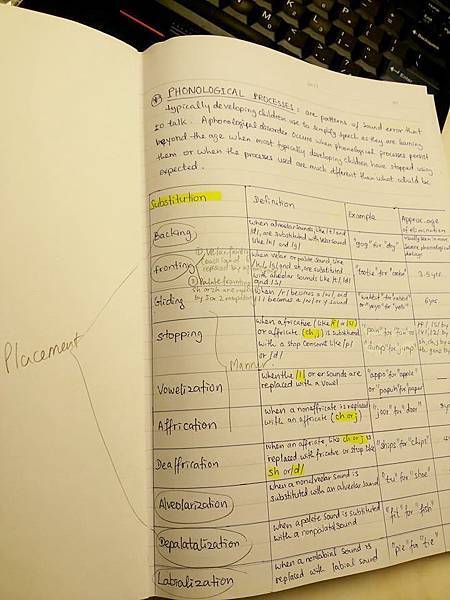 PHONOLOGICAL PROCESSES: are patterns of sound error that
typically developing children use to simplify speech as they are learning
to talk. A phonological disorder occurs when phonological processes persist
beyond the age when most typically developing children have stopped using
them or when the processes used are much different than what would be
expected.
Substitution
Definition
Example
Approx. age
of elimination
Backing
when alveolar sounds, like /t/ and
/d/, are substituted with velar sounds
like /k/ and /g/
"gog" for "dog"
Usually seen in more
severe phonological
delays
fronting
when velar or palatal sounds, like
/k/, /g/ and sh, are substituted
with alveolar sounds like /t/, /d/
and /s/
"tootie" for "cookie"
3.5 yrs.
Gliding
when /r/ becomes a /w/, and
/l/ becomes a /w/ or y sound
6 yrs.
Placement
stopping
when a fricative (like /f/ or /s/)
or affricate (ch, j) is substituted
with a stop consonant like /p/
or /d/
"pan" for "fan"
"dump" for "jump"
Manner
Vowelization
when the /l/ or er sounds are
replaced with a vowel
"appo" for "apple"
or "papuh" for "paper"
Affrication
when a nonaffricate is replaced
with an affricate (ch or j)
"joor" for "door"
Deaffrication
when an affricate, like ch or j is
replaced with fricative or stop like
sh or /d/
"ships" for "chips"
Alveolarization
when a nonalveolar sound is
substituted with an alveolar sound
"tu" for "shoe"
Depalatalization
when a palatal sound is substituted
with a nonpalatal sound
"fit" for "fish"
Labialization
when a nonlabial sound is
replaced with labial sound
"pie" for "tie"